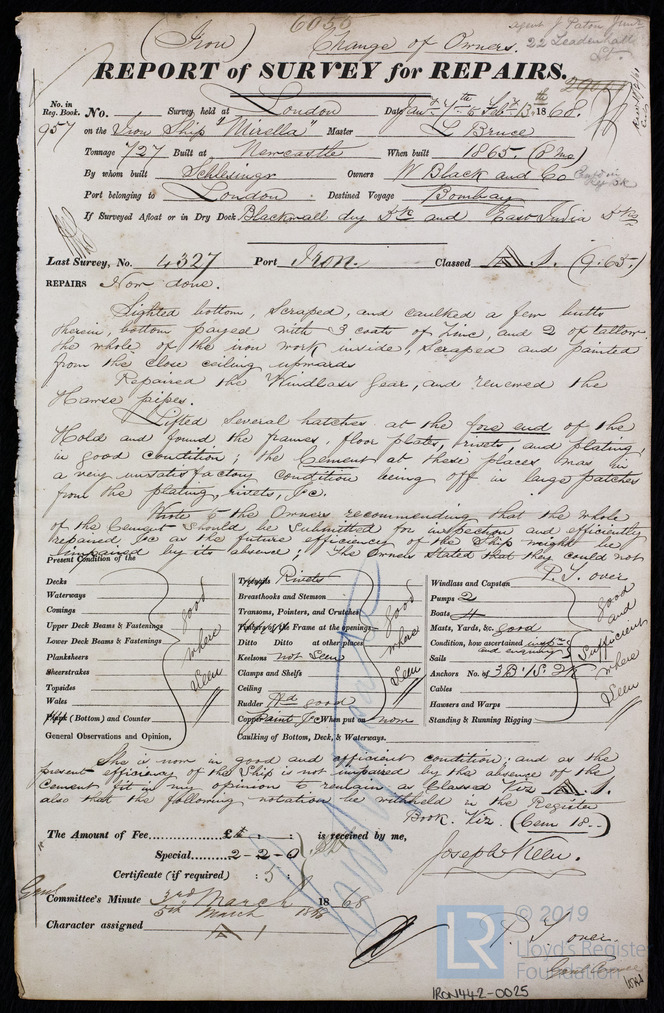 6050
(Iron) Change of Owners.
agent J. Paton Junr
22 Leadenhall St.
REPORT of SURVEY for REPAIRS.
No. in Reg. Book. 957
No. Survey held at London Date, Jany 4th & Feby 13th 1868.
on the Iron Ship "Mirella" Master L Bruce
Tonnage 727 Built at Newcastle When built 1865. (8 mo)
By whom built Schlesinger Owners W Black and Co
Port belonging to London Destined Voyage Bombay
If Surveyed Afloat or in Dry Dock Blackwall dry Dk and East India Dks
Last Survey, No. 4327 Port Iron. Classed A 1. (9.65.)
REPAIRS Now done.
Sighted bottom, scraped, and caulked a few butts
therein, bottom payed with 3 coats of zinc, and 2 of tallow,
the whole of the iron work inside, scraped and painted
from the close ceiling upwards
Repaired the Windlass gear, and renewed the
Hawse pipes.
Lifted several hatches at the fore end of the
Hold and found the frames, floor plates, rivets, and plating,
in good condition; the Cement at these places was in
a very unsatisfactory condition being off in large patches
from the plating, rivets, &c.
Wrote to the Owners recommending that the whole
of the Cement should be submitted for inspection and efficiently
repaired, &c as the future efficiency of the Ship might be
impaired by its absence; the Owners stated that they could not
P. T. over
Present Condition of the
Decks
Waterways
Comings
Upper Deck Beams & Fastenings
Lower Deck Beams & Fastenings
Planksheers
Sheerstrakes
Topsides
Wales
Plank (Bottom) and Counter
good where seen
General Observations and Opinion,
Treenails Rivets
Breasthooks and Stemson
Transoms, Pointers, and Crutches
Timbers of the Frame at the openings
Ditto Ditto at other places
Keelsons not seen
Clamps and Shelfs
Ceiling
Rudder good
Copper Paint &c When put on now
good where seen
Caulking of Bottom, Deck, & Waterways.
Windlass and Capstan
Pumps 2
Boats 4
Masts, Yards, &c. good
Condition, how ascertained insptn and enquiry
Sails
Anchors No. of 3B. 1S. 2K
Cables
Hawsers and Warps
Standing & Running Rigging
good and sufficient where seen
She is now in good and efficient condition; and as the
present efficiency of the Ship is not impaired by the absence of the
Cement fit in my opinion to remain as Classed Viz A 1.
also that the following notation be withheld in the Register
Book. Viz. (Cem 18..)
The Amount of Fee £ : : is received by me,
Special 2-2-0
Certificate (if required) : 5 :
Joseph Keen.
Committee's Minute 3rd March 1868
5th March 1868
Character assigned A 1
P. T over.
© 2019
LR
Lloyd's Register
Foundation
IRON442-0025